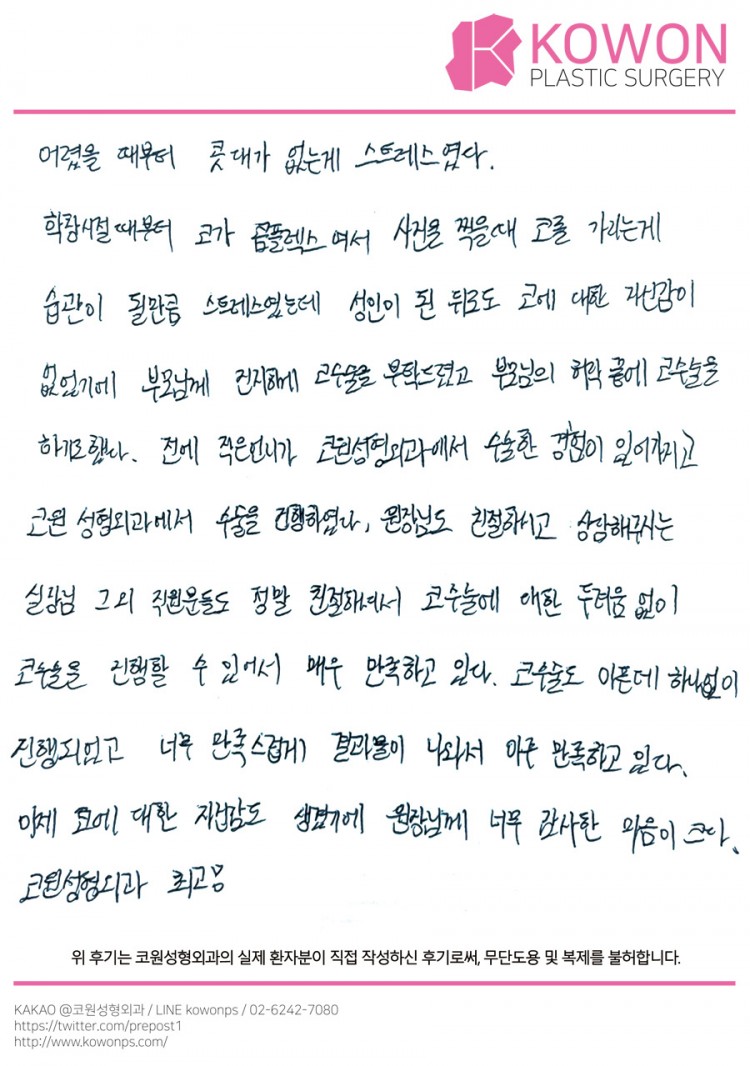 KOWON
PLASTIC SURGERY
어렸을 때부터 콧대가 없는게 스트레스였다.
학창시절때부터 코가 콤플렉스여서 사진을 찍을때 코를 가리는게
습관이 될만큼 스트레스였는데 성인이 된 뒤로도 코에 대한 자신감이
없었기에 부모님께 진지하게 코수술을 부탁드렸고 부모님의 허락 끝에 코수술을
하기로했다. 전에 작은언니가 코원성형외과에서 수술한 경험이 있어가지고
코원 성형외과에서 수술을 진행하였다, 원장님도 친절하시고 상담해주시는
실장님 그외 직원분들도 정말 친절하셔서 코수술에 대한 두려움 없이
코수술을 진행할 수 있어서 매우 만족하고 있다. 코수술도 아픈데 하나없이
진행되었고 너무 만족스럽게 결과물이 나와서 아주 만족하고 있다.
이제 코에 대한 자신감도 생겼기에 원장님께 너무 감사한 마음이 크다.
코원성형외과 최고
위 후기는 코원성형외과의 실제 환자분이 직접 작성하신 후기로써, 무단도용 및 복제를 불허합니다.
KAKAO @코원성형외과 / LINE kowonps / 02-6242-7080
https://twitter.com/prepost1
http://www.kowonps.com/